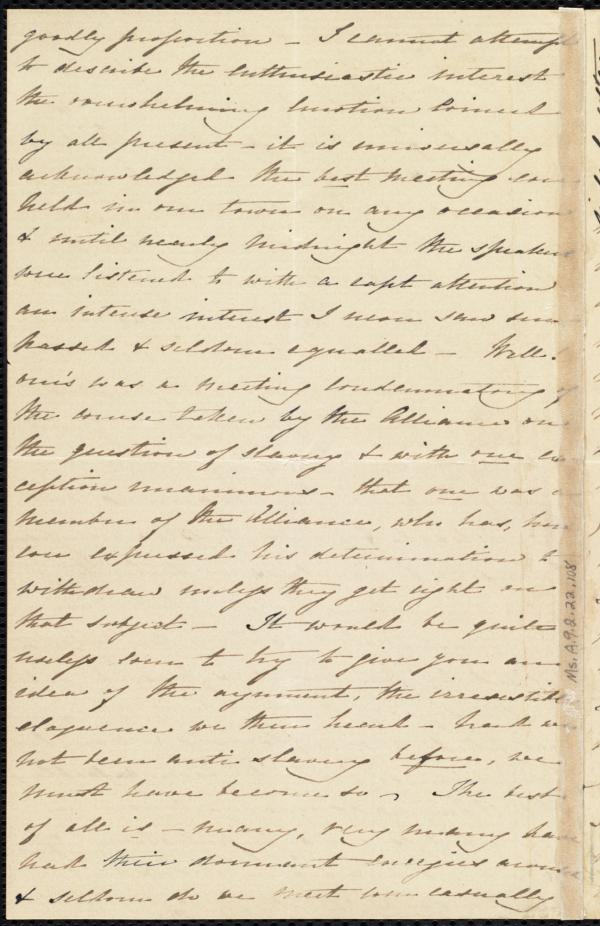 goodly proportion – I cannot attempt
to describe the enthusiastic interest
the overwhelming emotion evinced
by all present – it is universally
acknowledged the best meeting ever
held in our town on any occasion
& until nearly midnight the speakers
were listened to with a rapt attention
an intense interest I never saw sur-
passed & seldom equalled – Well!
ours was a meeting condemnatory of
the course taken by the Alliance on
the question of slavery & with one ex
ception unanimous – that one was a
member of the Alliance, who has, how
ever expressed his determination to
withdraw unless they get right on
that subject – It would be quite
useless even to try to give you an
idea of the argument, the irresistible
eloquence we then heard – had we
not been anti slavery before, we
must have become so – The best
of all is – many, very many have
had their dormant energies arouse
& seldom do we meet even casually
Ms. A.9.2.22.108